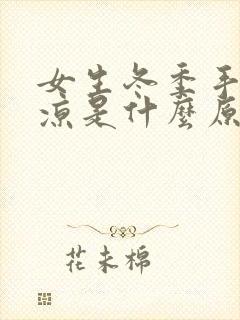 女生冬季手
凉是什麼原
花未棉